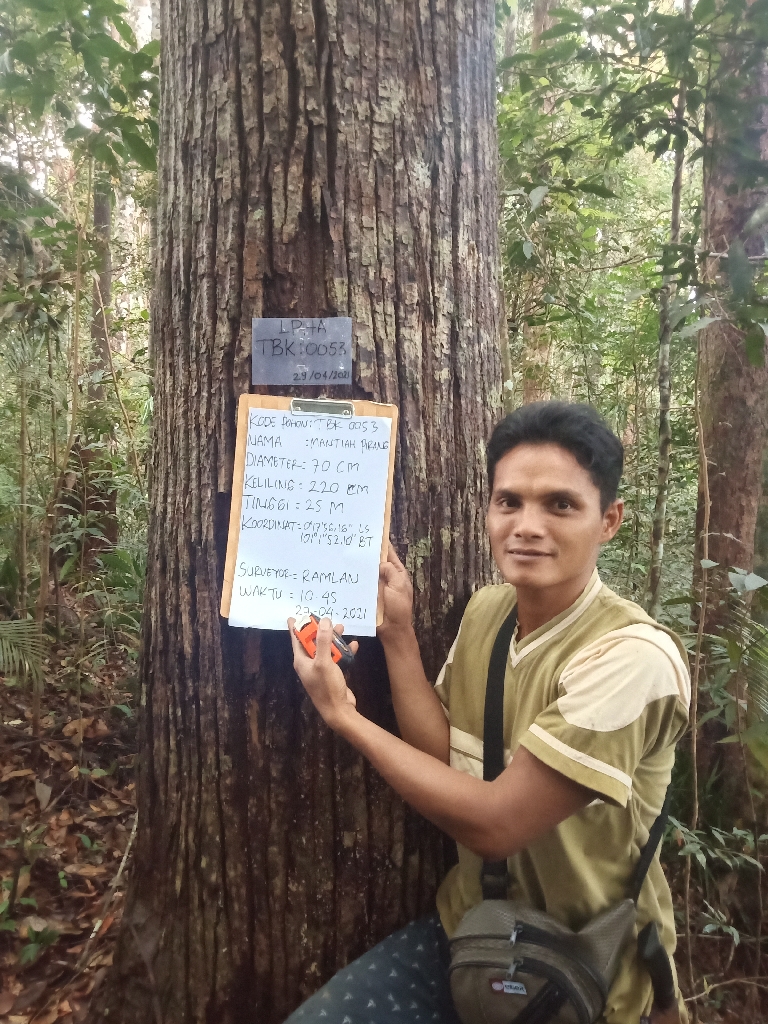 LPHA
TBK:0053
29/04/2021
KODE POHON: TBK 0053
NAMA : MANTIAH PIRANG
DIAMETER = 70 CM
KELILING = 220 CM
TINGGI = 25 M
KOORDINAT = 0°17'56.16" LS
101°1'52.10" BT
SURVEYOR = RAMLAN
WAKTU = 10.45
27-04-2021